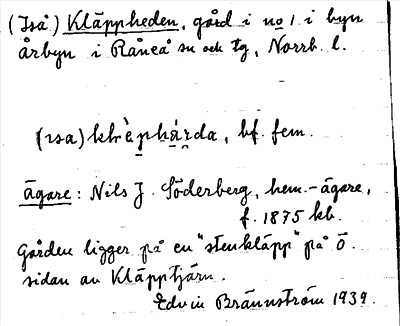 (Iså) Kläppheden, gård i no 1 i byn
årbyn i Råneå sn och tg, Norrb. l.
(ısa) klɛ̀pha̱rda, bf. fem.
ägare: Nils J. Söderberg, hem.-ägare,
f. 1875 kb.
Gården ligger på en "stenkläpp" på ö.
sidan av Kläpptjärn.
Edvin Brännström 1939.